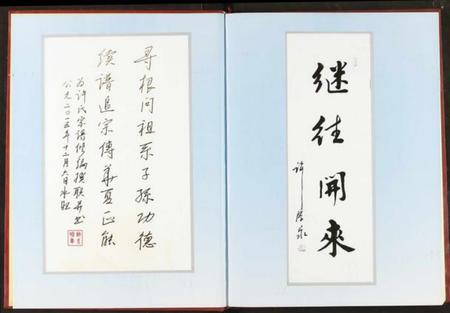 寻根问祖系子孙功德
续谱追宗傳華夏正能
为许氏宗谱修编撰联并书
公元二〇一五年十二月六日
继往開來
许